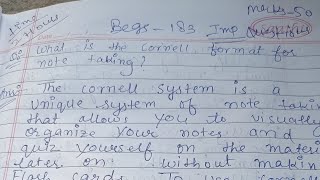 Time
2 Hours
Marks-50
Begs-183 Imp Questions
Q: What is the cornell format for
note taking?
Ans: The cornell system is a
unique system of note takin
that allows you to visually
organize your notes and
quiz yourself on the materi
later on without makin
Flash cards. To use